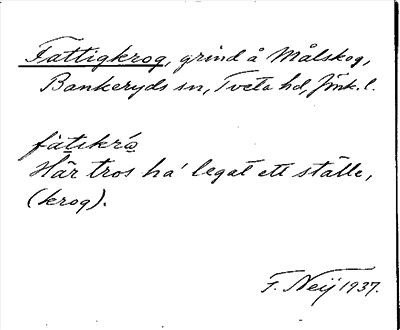 Fattigkrog, grind å Målskog,
Bankeryds sn, Tveta hd, Jönk. l.
fàtikrɷ́
Här tros ha' legat ett ställe,
(krog).
F. Neij 1937.